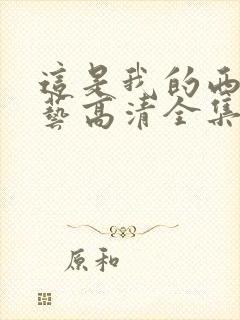 這是我的西
藝高清全集
原和